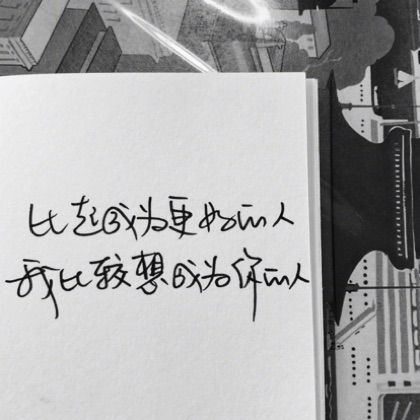 比起成为更好的人
我比较想成为你的人